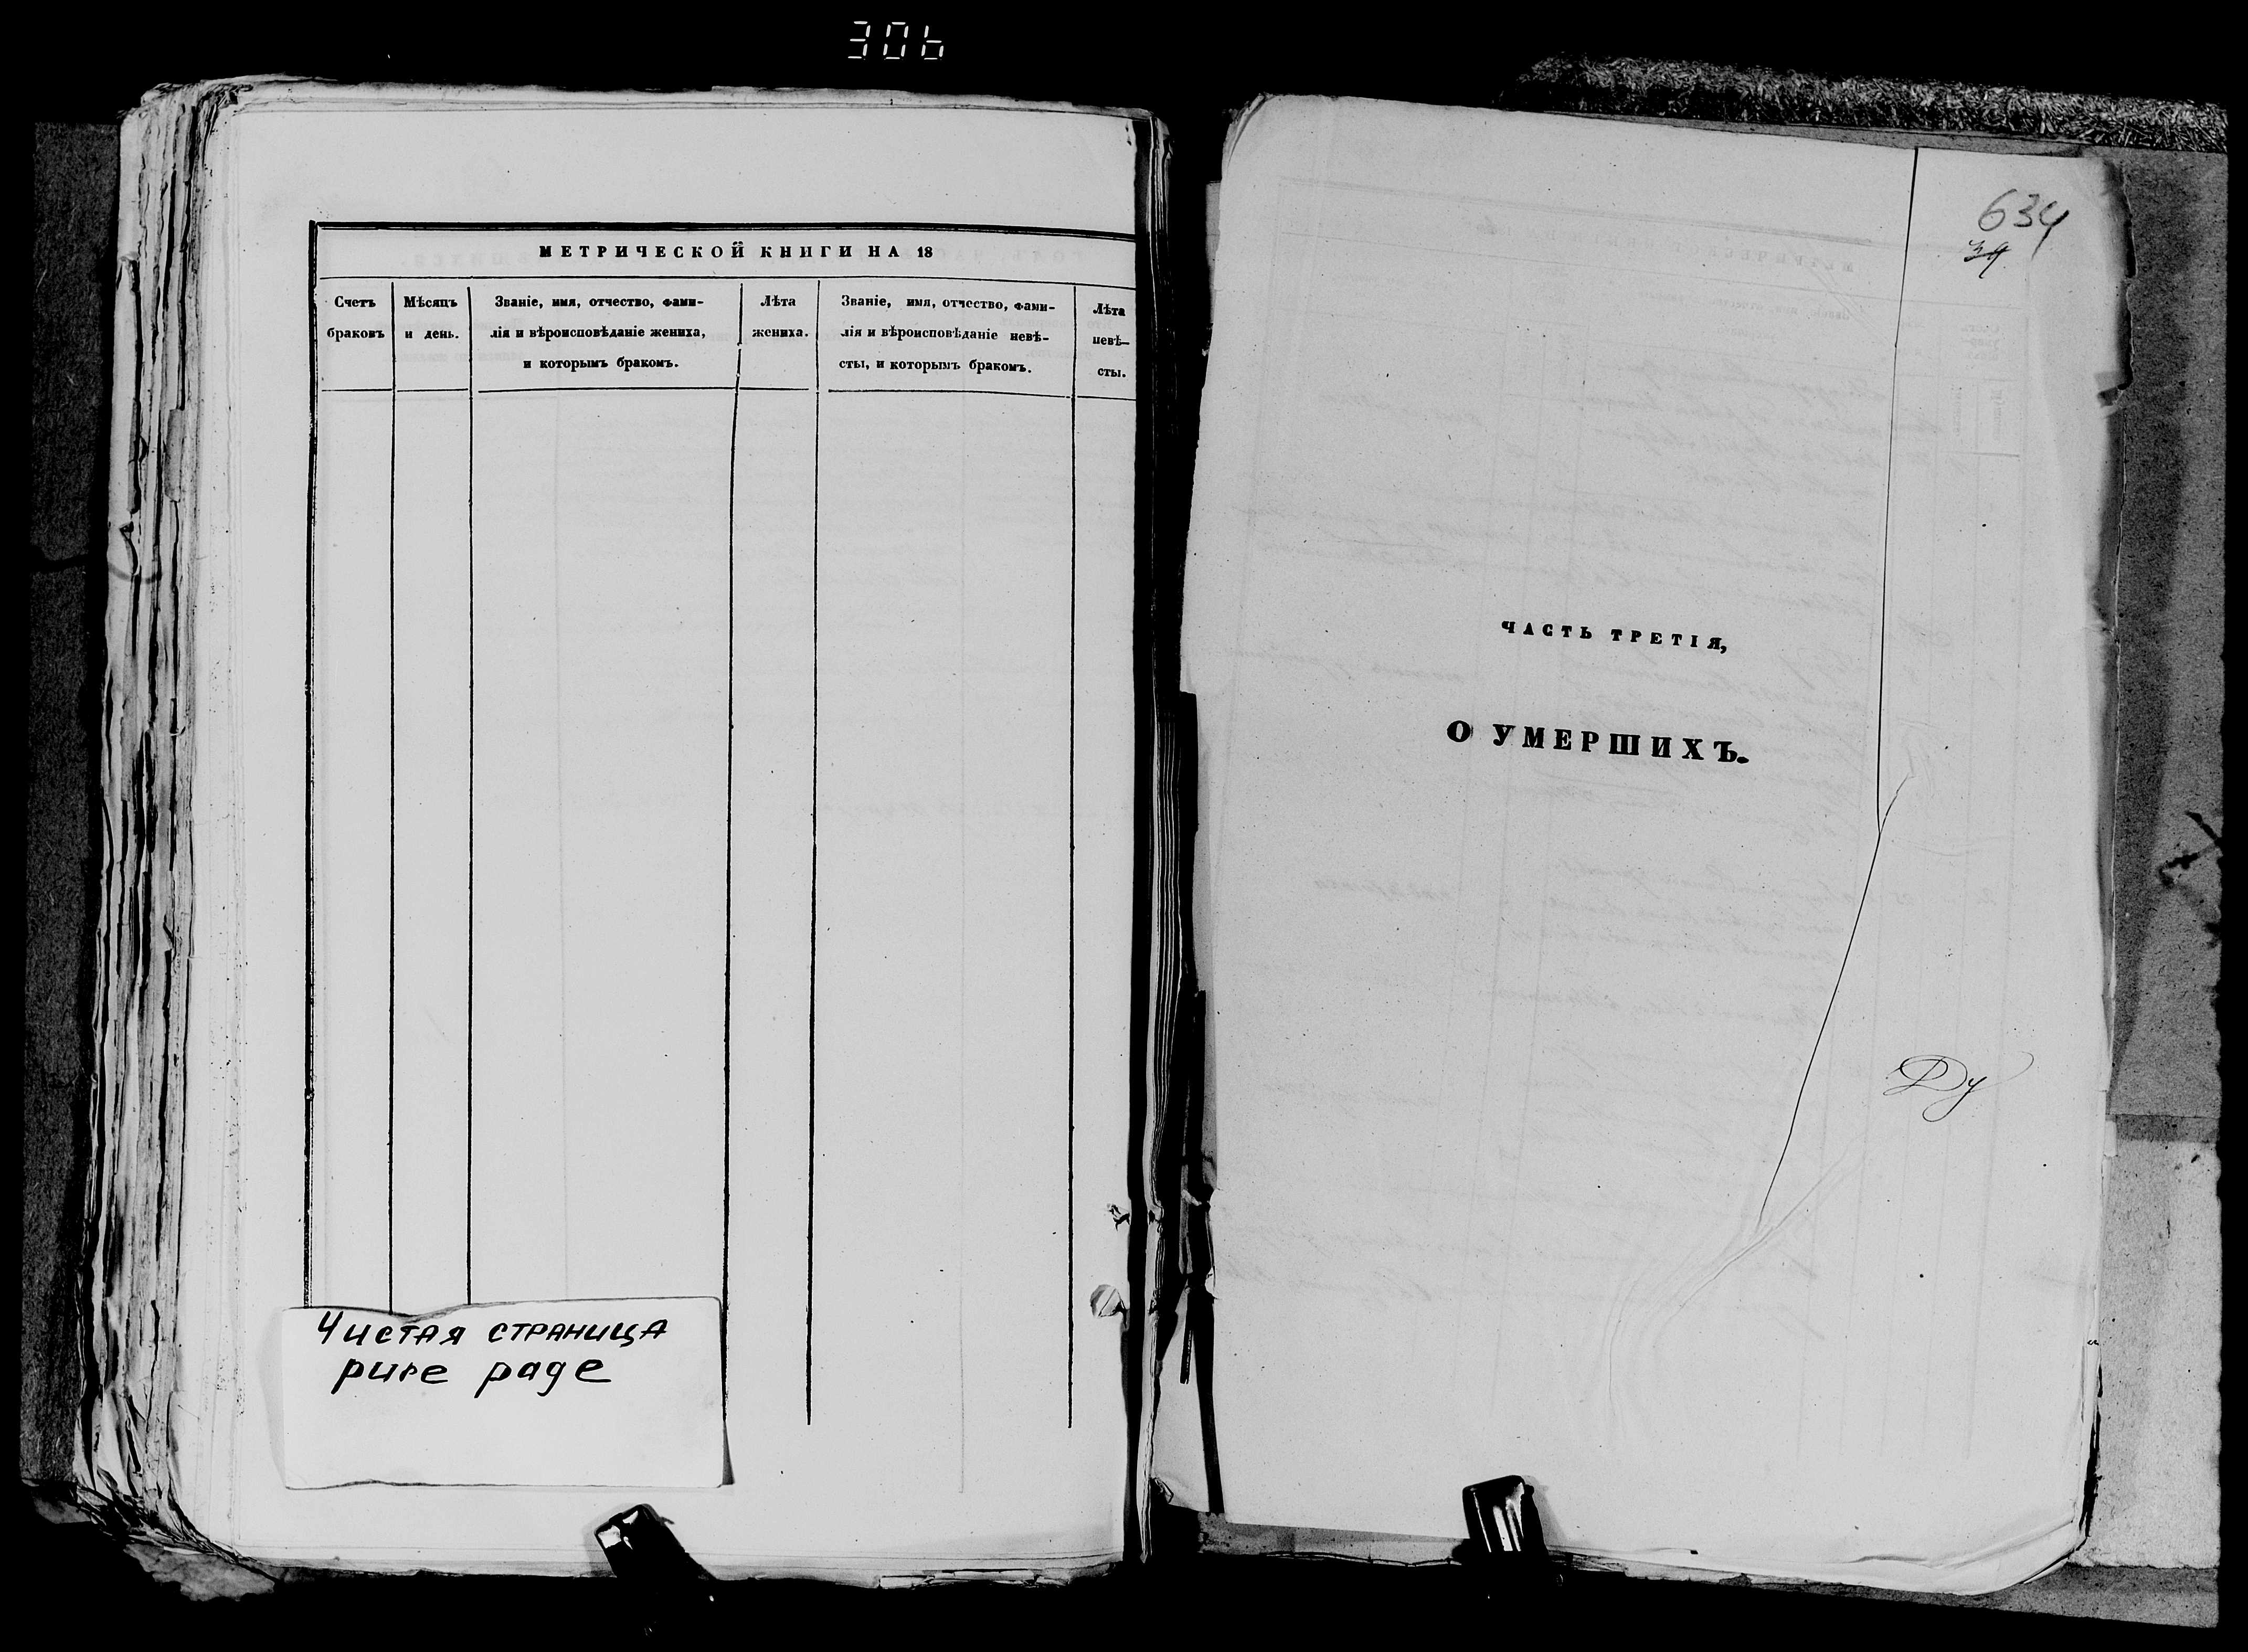 306
МЕТРИЧЕСКОЙ КНИГИ НА 18
Счетъ браковъ
Мѣсяцъ и день.
Званіе, имя, отчество, фами-
лія и вѣроисповѣданіе жениха,
и которымъ бракомъ.
Лѣта
жениха.
Званіе, имя, отчество, фами-
лія и вѣроисповѣданіе невѣ-
сты, и которымъ бракомъ.
Лѣта
невѣ-
сты.
Чистая страница
pure page
634
39
ЧАСТЬ ТРЕТІЯ,
О УМЕРШИХЪ.
Ду